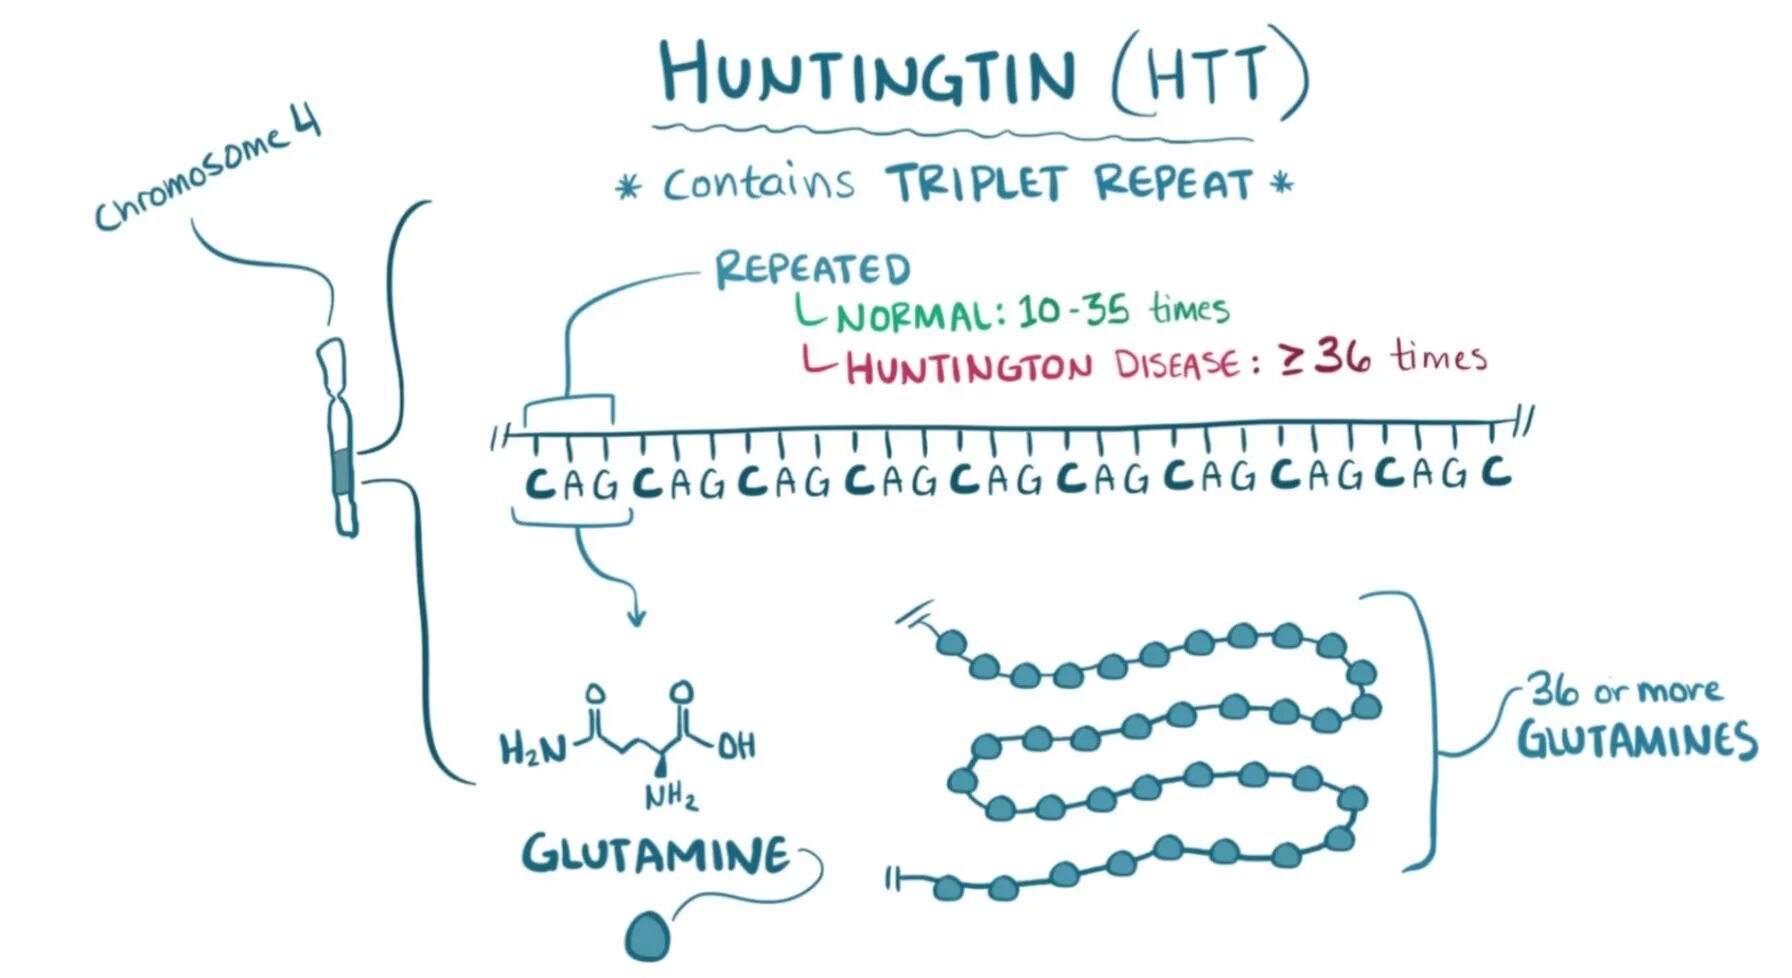 HUNTINGTIN (HTT)
* Contains TRIPLET REPEAT *
Chromosome 4
REPEATED
NORMAL: 10-35 times
HUNTINGTON DISEASE: ≥36 times
CAGCAGCAGCAGCAGCAGCAGCAGCAGC
O O
H2N OH
NH2
GLUTAMINE
36 or more
GLUTAMINES